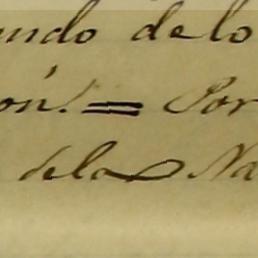 undo de lo
on. = Por
dela Na